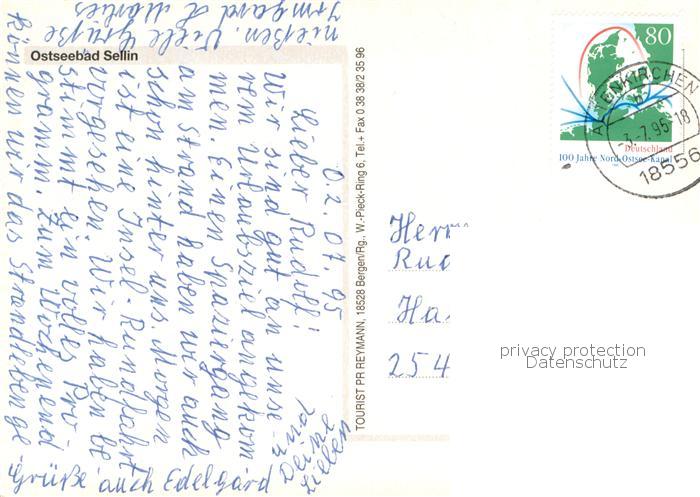 Ostseebad Sellin
O.Z. 07.95
Lieber Rudolf!
Wir sind gut an unse-
rem Urlaubsziel angekom
men. Einen Spaziergang
am Strand haben wir auch
schon hinter uns. Morgen
ist eine Insel-Rundfahrt
vorgesehen. Wir haben be
stimmt ein volles Pro
gramm. Zum Wochenend
können wir das Strandleben ge
nießen. Viele Grüße
Irmgard & Marlies
Grüße auch Edelgard
und
Deine
Lieben
TOURIST PR REYMANN, 18528 Bergen/Rg., W.-Pieck-Ring 6, Tel.+ Fax 0 38 38/2 35 96
80
Deutschland
100 Jahre Nord-Ostsee-Kanal
ALTENKIRCHEN
b
-3.-7.95-18
18556
Herr
Rud
Ha
254
privacy protection
Datenschutz